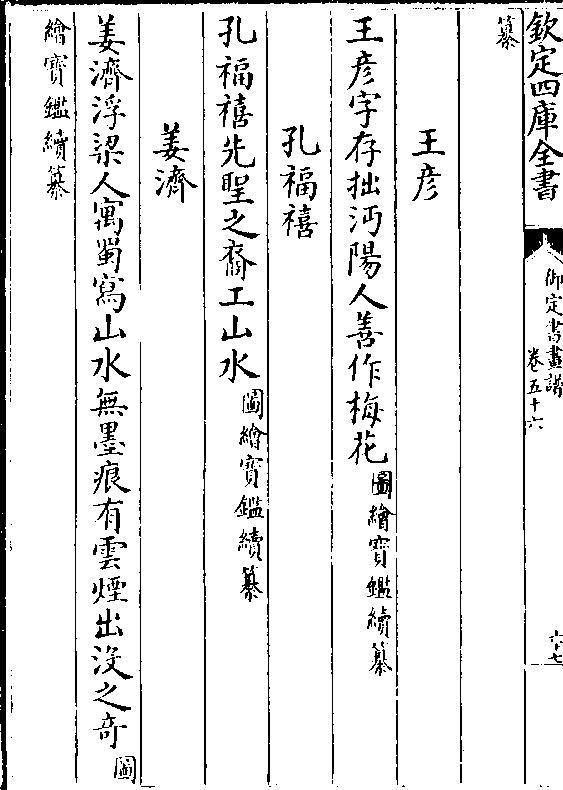 欽定四庫全書
御定書畫譜
卷五十六
六十七
纂
王彦
王彦字存拙沔陽人善作梅花圖繪寶鑑續纂
孔福禧
孔福禧先聖之裔工山水圖繪寶鑑續纂
姜濟
姜濟浮梁人寓蜀寫山水無墨痕有雲煙出沒之奇圖
繪寶鑑續纂